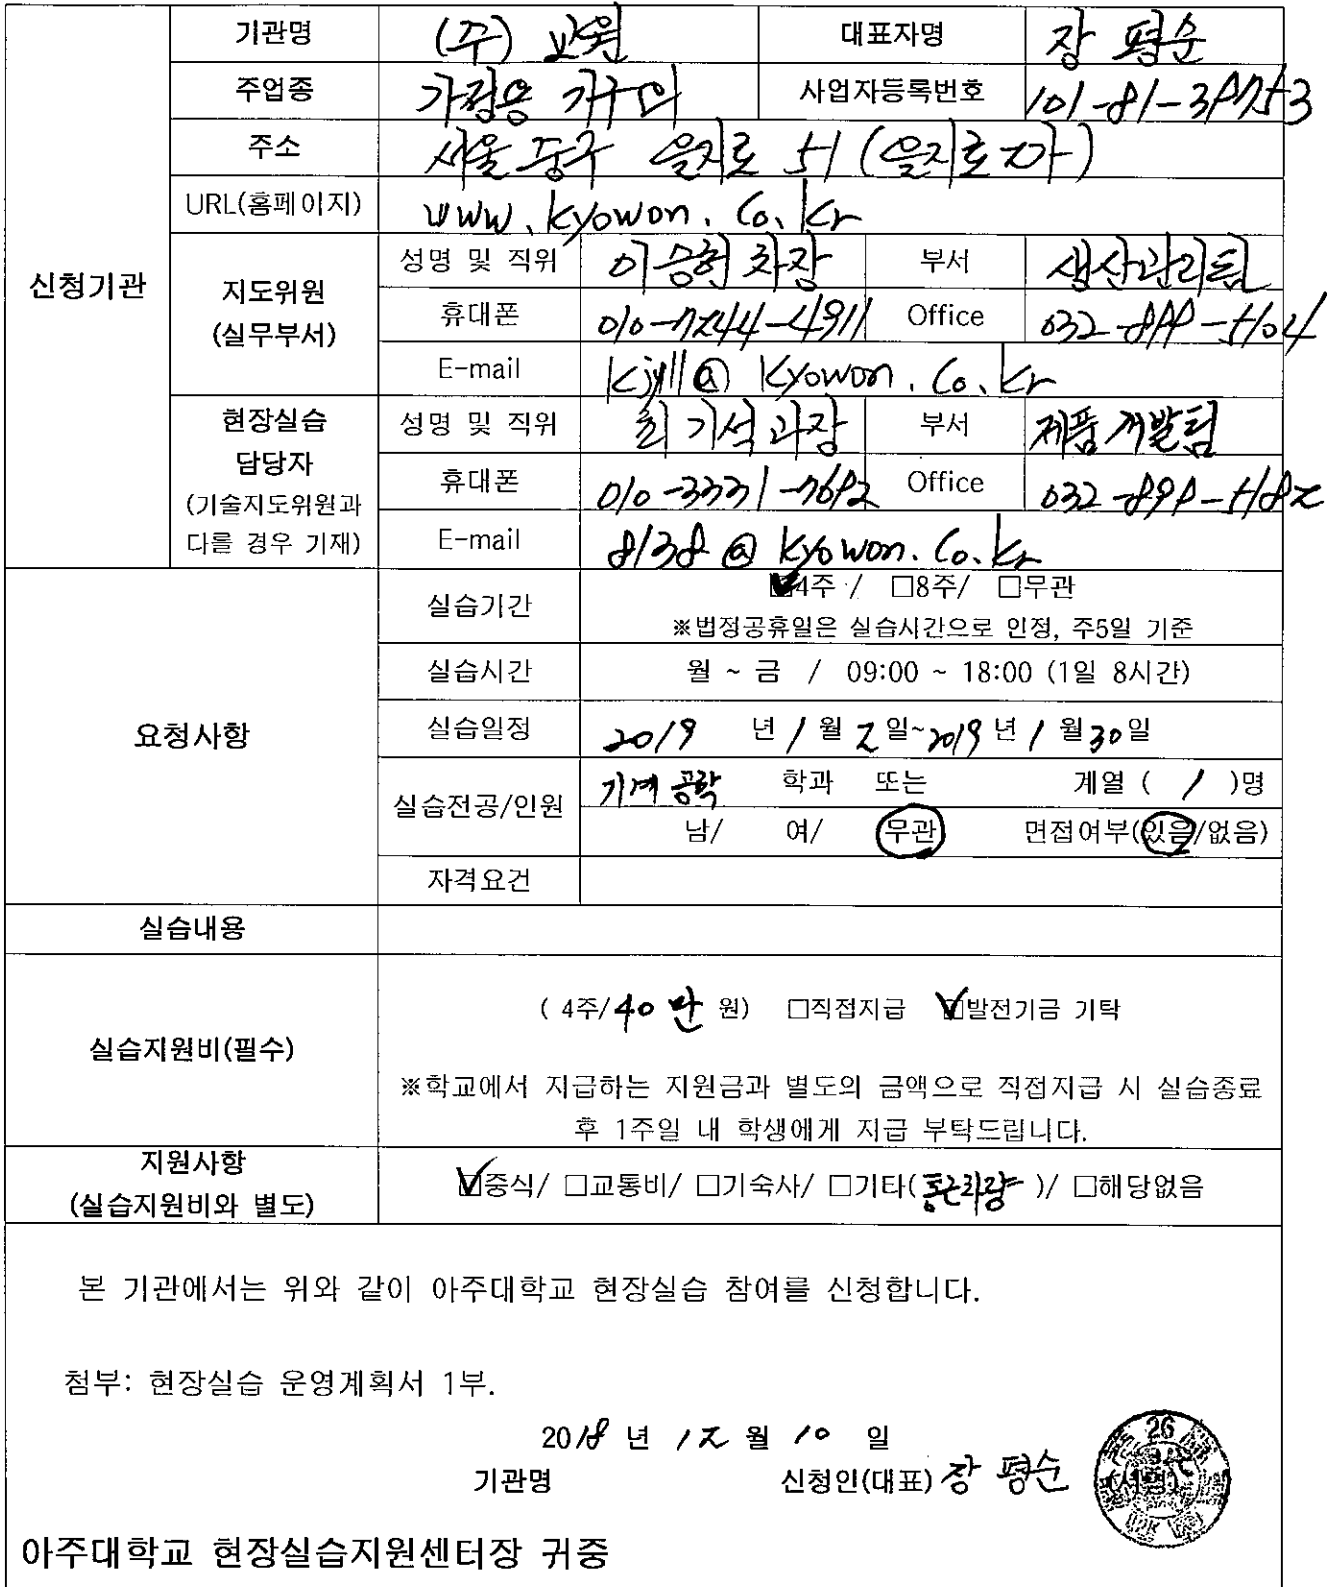 기관명 (주) 교원 대표자명 장 평순
주업종 가정용 가구외 사업자등록번호
주소 서울 중구 을지로 51 (을지로2가)
URL(홈페이지) www.kyowon.co.kr
신청기관
지도위원
(실무부서)
성명 및 직위 이승헌 차장 부서 생산관리팀
휴대폰 010-7244-4911 Office 032-899-5104
E-mail @kyowon.co.kr
현장실습
담당자
(기술지도위원과
다를 경우 기재)
성명 및 직위 최기석 과장 부서 제품개발팀
휴대폰 010-3331-7692 Office 032-899-5182
E-mail 8138@kyowon.co.kr
요청사항
실습기간 ☑4주 / □8주/ □무관
※법정공휴일은 실습시간으로 인정, 주5일 기준
실습시간 월 ~ 금 / 09:00 ~ 18:00 (1일 8시간)
실습일정 2019 년 1 월 2 일~2019 년 1 월 30 일
실습전공/인원 기계공학 학과 또는 계열 ( 1 )명
남/ 여/ 무관 면접여부(있음/없음)
자격요건
실습내용
실습지원비(필수)
( 4주/40만 원) □직접지급 ☑발전기금 기탁
※학교에서 지급하는 지원금과 별도의 금액으로 직접지급 시 실습종료
후 1주일 내 학생에게 지급 부탁드립니다.
지원사항
(실습지원비와 별도)
☑중식/ □교통비/ □기숙사/ □기타(통근차량 )/ □해당없음
본 기관에서는 위와 같이 아주대학교 현장실습 참여를 신청합니다.
첨부: 현장실습 운영계획서 1부.
2018 년 12 월 10 일
기관명 신청인(대표) 장 평순 (서명)
26
아주대학교 현장실습지원센터장 귀중